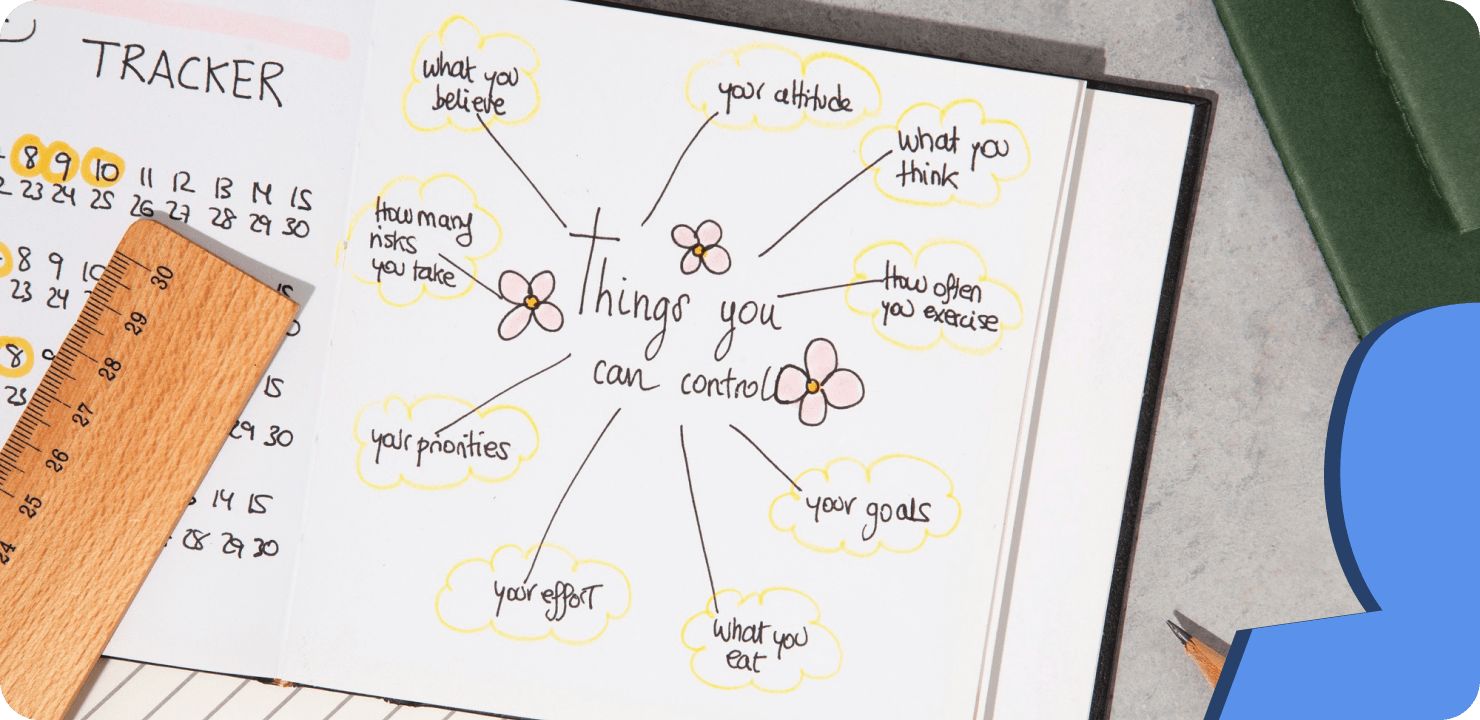 TRACKER
8 9 10 11 12 13 14 15
23 24 25 26 27 28 29 30
8 9 10
23 24
15
8
23
15
29 30
14 15
28 29 30
30
29
28
27
26
25
24
what you
believe
your attitude
what you
think
How many
risks
you take
How often
you exercise
Things you
can control
your priorities
your goals
your effort
what you
eat